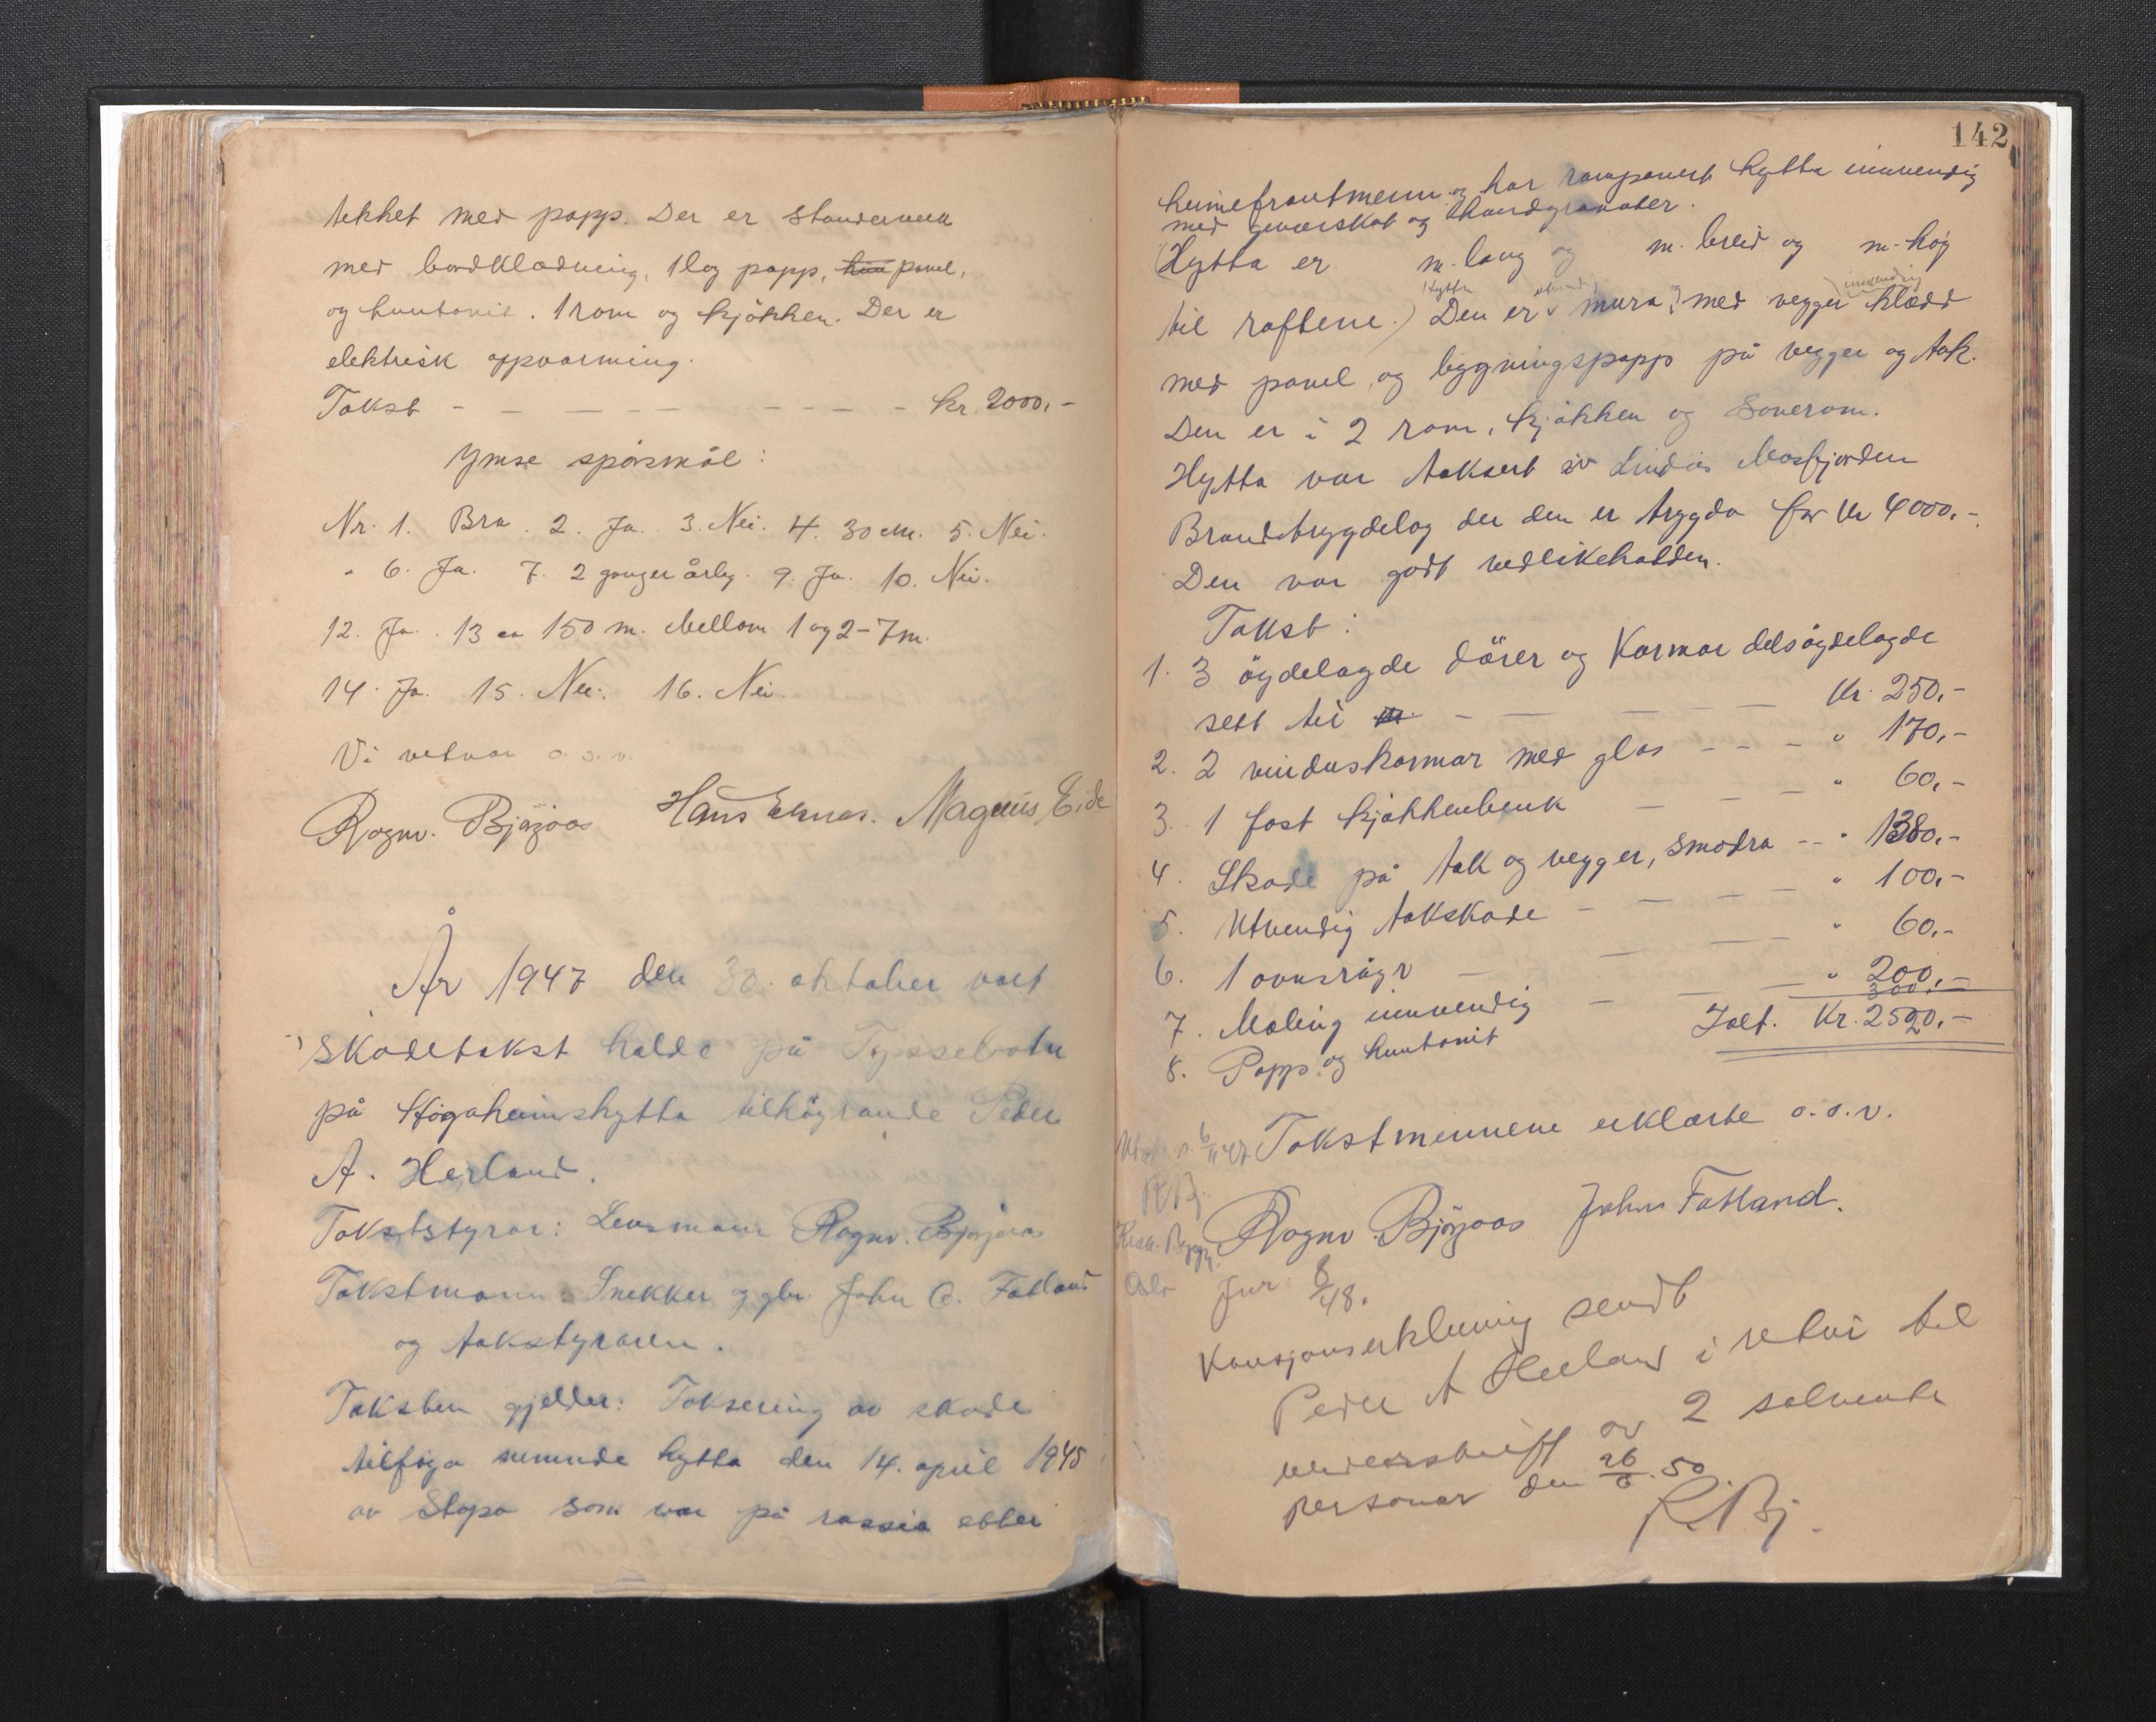 tekket med papp. Der er standerverk
med bordklædning, 1 lag papp, panel,
og huntonit. 1 rom og kjökken. Der er
elektrisk oppvarming.
Takst - - - - - - - - - - kr. 2000,-
Ymse spörsmål:
Nr. 1. Bra. 2. Ja. 3. Nei. 4. 30 cm. 5. Nei.
" 6. Ja. 7. 2 ganger årleg. 9. Ja. 10. Nei.
12. Ja. 13 ca 150 m. Mellom 1 og 2 - 7 m.
14. Ja. 15. Nei. 16. Nei.
Vi vetnar o.s.v.
Ragnv. Bjözoos Hans Magnus Eide
År 1947 den 30. oktober vart
skadetakst halde på Tyssebotn
på Högaheimshytta tilhöyrande Peder
A. Herland.
Takststyrar: Lensmann Ragnv. Bjözoos
Takstmann: Snekker og gbr. John O. Fatland
og takstyraren.
Taksten gjelder: Taksering av skade
tilföga nemnde hytta den 14. april 1945
av Stapo som var på rassia etter
142
heimefrontmenn og har ramponert hytta innvendig
med geværskot og handgranater.
(Hytta er m. lang og m. breid og m. höy
til raftene.) Den er mura, med vegger innvendig klædd
hytta
med panel, og bygningspapp på vegger og tak.
Den er i 2 rom, kjökken og soverom.
Hytta var taksert av Lindås Masfjorden
Brandtrygdelag der den er trygda for kr 4000,-.
Den var godt vedlikehalden.
Takst:
1. 3 öydelagde dörer og karmar dels öydelagde
sett til - - - - - kr. 250,-
2. 2 vinduskarmar med glas - - - " 170,-
3. 1 fast kjökkenbenk - - - " 60,-
4. Skade på tak og vegger, smadra - - " 1380,-
5. Utvendig takskade - - - - " 100,-
6. 1 ovnsröyr - - - " 60,-
7. Maling innvendig - - - " 200,-
8. Papp og huntonit 300,-
Ialt. Kr. 2520,-
Takstmennene erklærte o.s.v.
6/11 47
R.Bj.
Ragnv. Bjözoos John Fatland.
Oslo
8/48.
sendt
Peder A Herland i retur til
underskrift av 2 solvente
personar den 26/6.50
R.Bj.